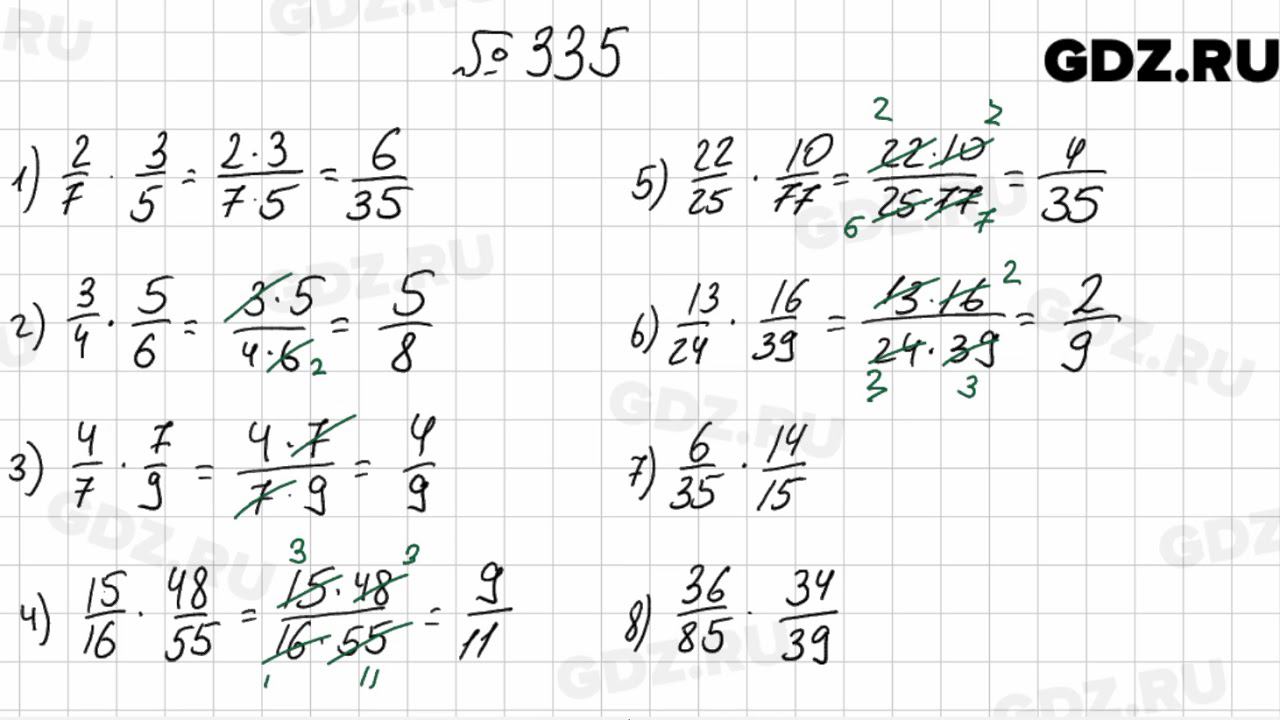 № 335
GDZ.RU
1) 2/7 · 3/5 = 2·3/7·5 = 6/35
2) 3/4 · 5/6 = 3·5/4·6 2 = 5/8
3) 4/7 · 7/9 = 4·7/7·9 = 4/9
4) 15/16 · 48/55 = 3 3 15·48/16·55 1 11 = 9/11
5) 22/25 · 10/77 = 2 2 22·10/25·77 6 7 = 4/35
6) 13/24 · 16/39 = 2 13·16/24·39 3 3 = 2/9
7) 6/35 · 14/15
8) 36/85 · 34/39